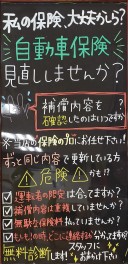 私の保険、大丈夫かしら?
自動車保険
見直ししませんか?
補償内容を
確認したのはいつですか?
※当店の保険のプロにお任せ下さい!
ずっと同じ内容で更新している方
危険
かも!?
運転者の限定は合ってますか?
補償内容は重複していませんか?
無駄な保険料払っていませんか?
もしもの時、どこに連絡するか分かりますか?
無料診断します!
スタッフに
お声がけ下さい